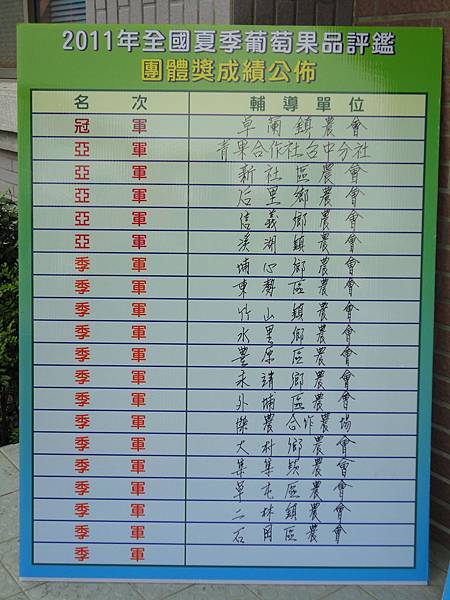 2011年全國夏季葡萄果品評鑑
團體獎成績公佈
名次 輔導單位
冠軍 卓蘭鎮農會
亞軍 青果合作社台中分社
亞軍 新社區農會
亞軍 后里鄉農會
亞軍 信義鄉農會
亞軍 溪湖鎮農會
季軍 埔心鄉農會
季軍 東勢區農會
季軍 竹山鎮農會
季軍 水里鄉農會
季軍 豐原區農會
季軍 永靖鄉農會
季軍 外埔區農會
季軍 傑農合作農場
季軍 大村鄉農會
季軍 集集鎮農會
季軍 草屯區農會
季軍 二林鎮農會
季軍 石岡區農會
季軍